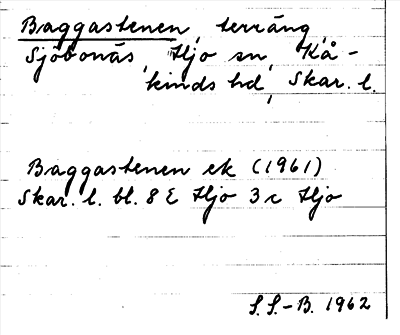 Baggastenen, terräng,
Sjöbonäs, Hjo sn, Kå-
kinds hd, Skar. l.
Baggastenen ek (1961)
Skar. l. bl. 8 E Hjo 3 c Hjo
S.S.-B. 1962